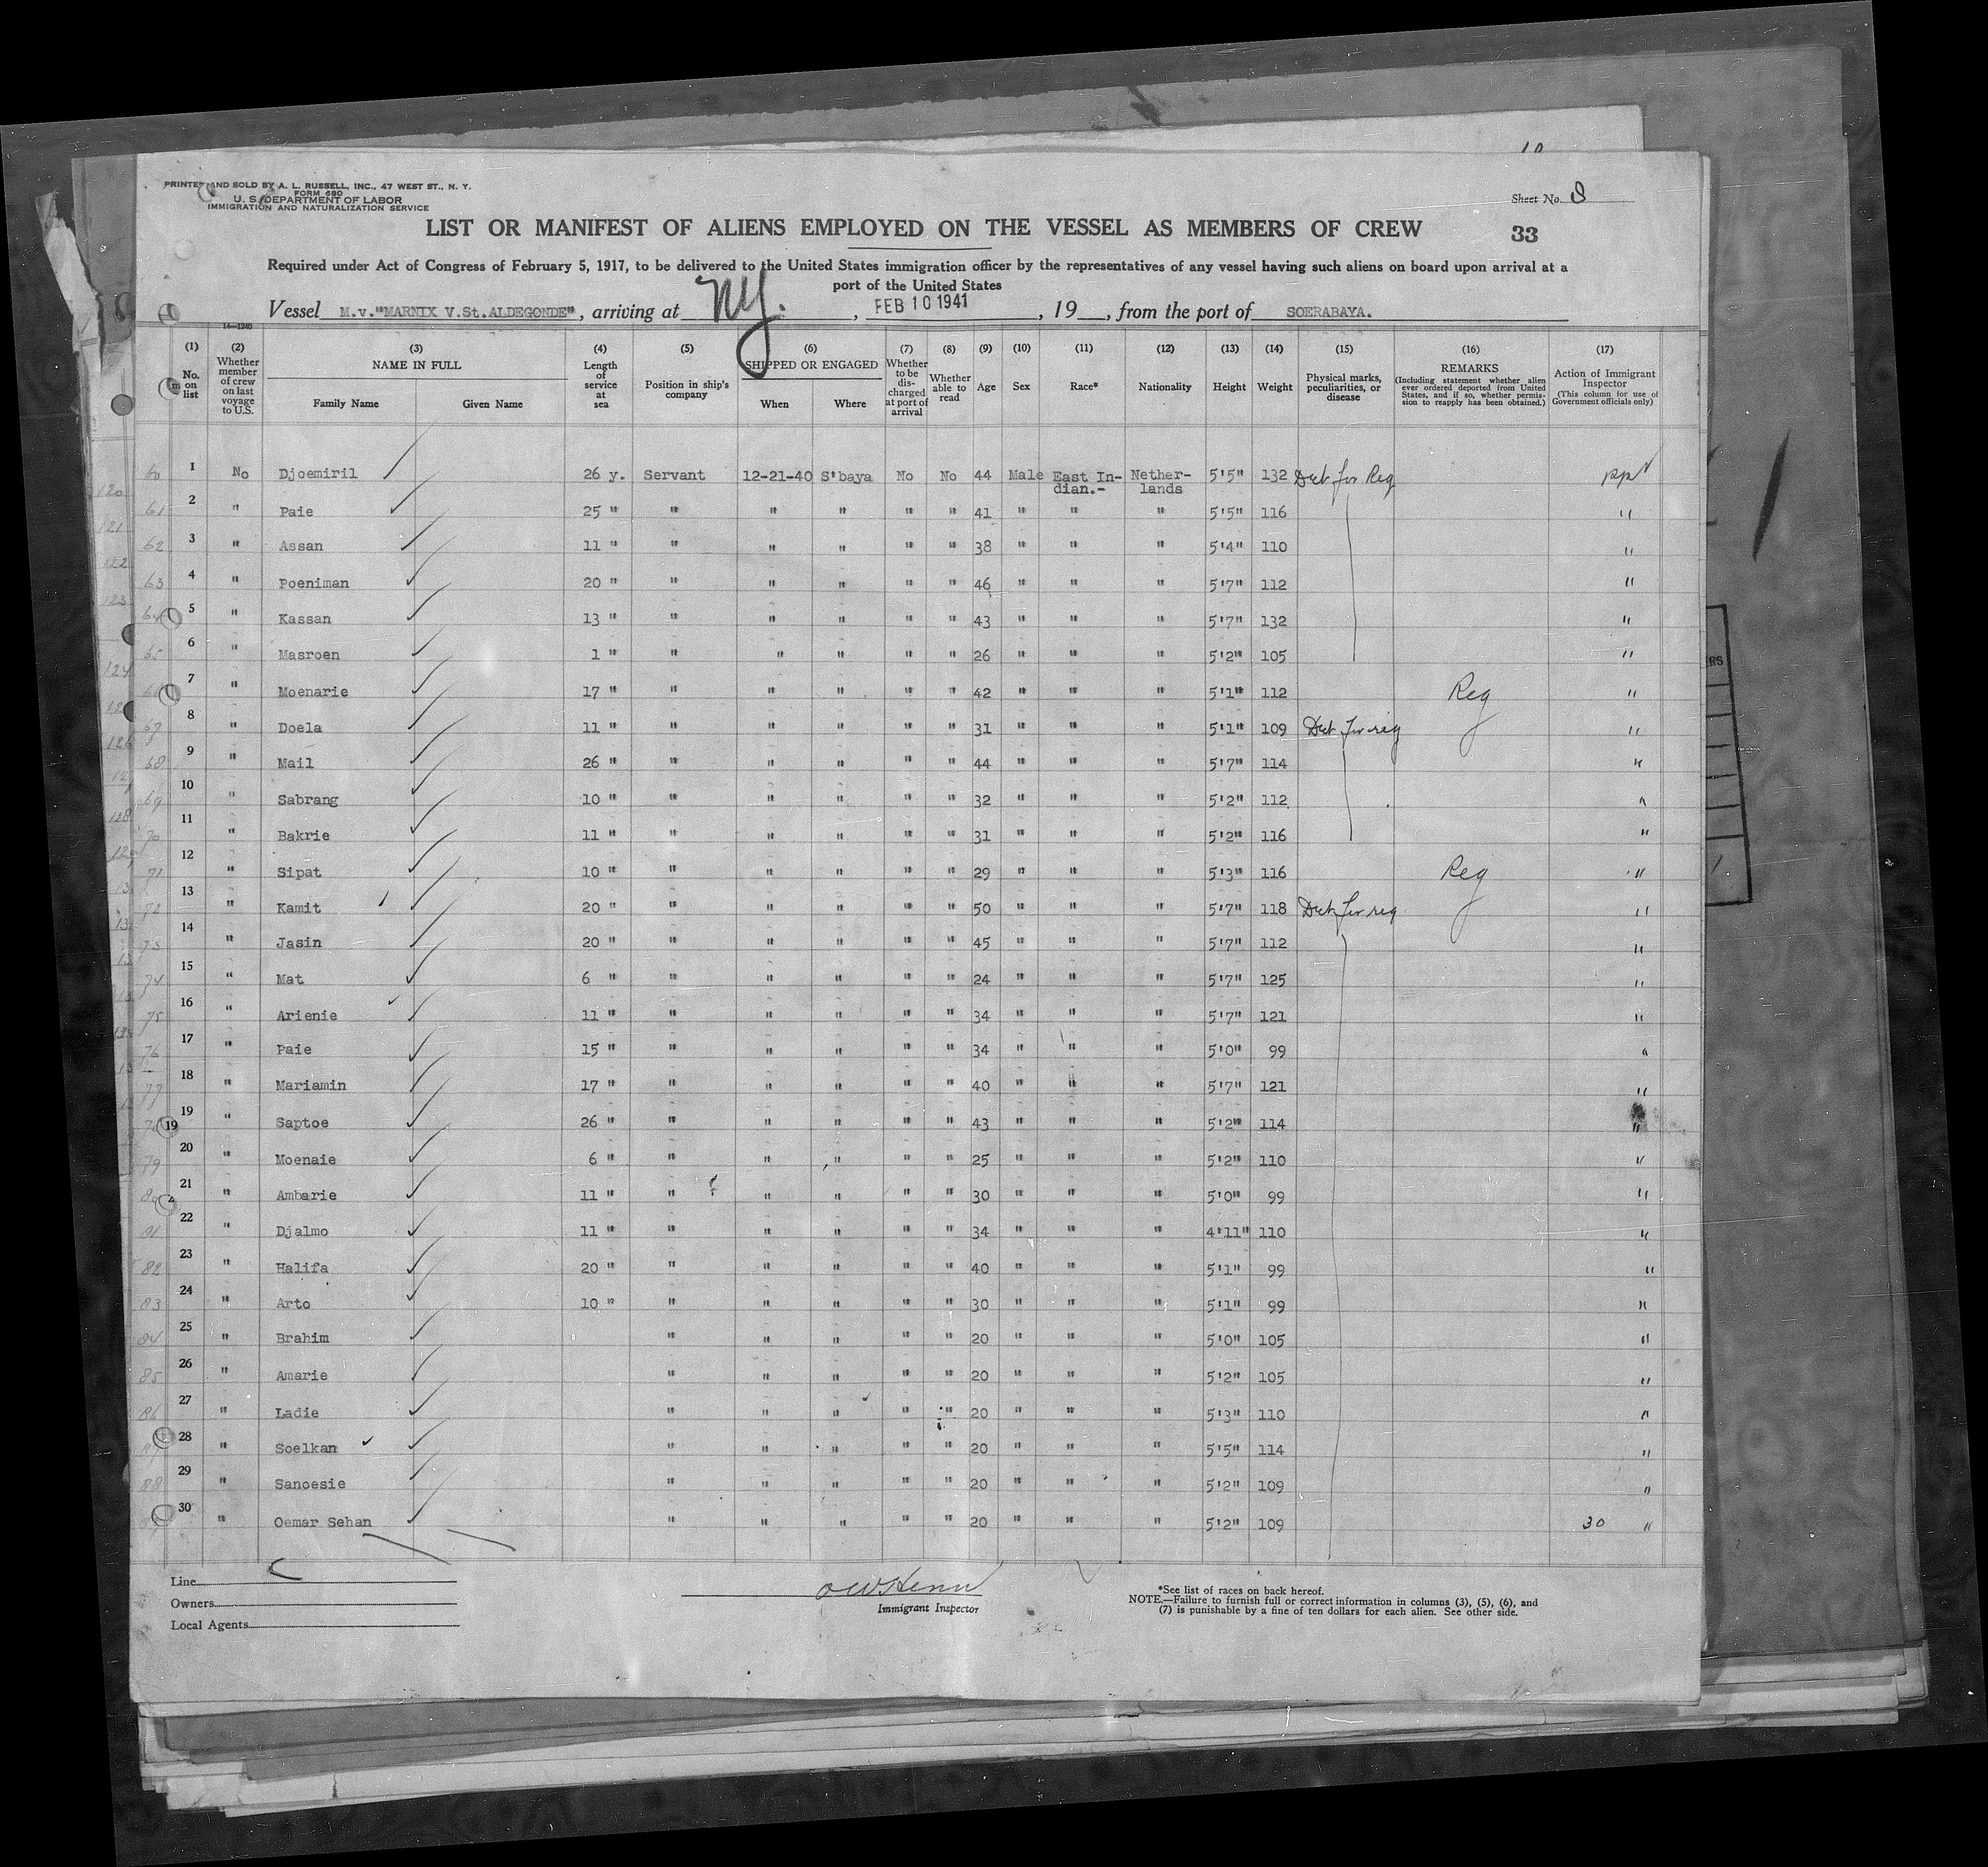 PRINTED AND SOLD BY A. L. RUSSELL, INC., 47 WEST ST., N. Y.
FORM 680
U. S. DEPARTMENT OF LABOR
IMMIGRATION AND NATURALIZATION SERVICE
Sheet No. 8
LIST OR MANIFEST OF ALIENS EMPLOYED ON THE VESSEL AS MEMBERS OF CREW
33
Required under Act of Congress of February 5, 1917, to be delivered to the United States immigration officer by the representatives of any vessel having such aliens on board upon arrival at a
port of the United States
Vessel M.v."MARNIX V.St.ALDEGONDE", arriving at NY., FEB 10 1941, 19__, from the port of SOERABAYA.
14—1240
(1) (2) (3) (4) (5) (6) (7) (8) (9) (10) (11) (12) (13) (14) (15) (16) (17)
No. on list
Whether member of crew on last voyage to U.S.
NAME IN FULL
Family Name Given Name
Length of service at sea
Position in ship's company
SHIPPED OR ENGAGED
When Where
Whether to be discharged at port of arrival
Whether able to read
Age
Sex
Race*
Nationality
Height
Weight
Physical marks, peculiarities, or disease
REMARKS
(Including statement whether alien ever ordered deported from United States, and if so, whether permission to reapply has been obtained.)
Action of Immigrant Inspector
(This column for use of Government officials only)
1 No Djoemiril 26 y. Servant 12-21-40 S'baya No No 44 Male East Indian.- Netherlands 5'5" 132
2 " Paie 25 " " " " " " 41 " " " 5'5" 116 "
3 " Assan 11 " " " " " " 38 " " " 5'4" 110 "
4 " Poeniman 20 " " " " " " 46 " " " 5'7" 112 "
5 " Kassan 13 " " " " " " 43 " " " 5'7" 132 "
6 " Masroen 1 " " " " " " 26 " " " 5'2" 105 "
7 " Moenarie 17 " " " " " " 42 " " " 5'1" 112 Reg "
8 " Doela 11 " " " " " " 31 " " " 5'1" 109 "
9 " Mail 26 " " " " " " 44 " " " 5'7" 114 "
10 " Sabrang 10 " " " " " " 32 " " " 5'2" 112 "
11 " Bakrie 11 " " " " " " 31 " " " 5'2" 116 "
12 " Sipat 10 " " " " " " 29 " " " 5'3" 116 Reg "
13 " Kamit 20 " " " " " " 50 " " " 5'7" 118 "
14 " Jasin 20 " " " " " " 45 " " " 5'7" 112 "
15 " Mat 6 " " " " " " 24 " " " 5'7" 125 "
16 " Arienie 11 " " " " " " 34 " " " 5'7" 121 "
17 " Paie 15 " " " " " " 34 " " " 5'0" 99 "
18 " Mariamin 17 " " " " " " 40 " " " 5'7" 121 "
19 " Saptoe 26 " " " " " " 43 " " " 5'2" 114 "
20 " Moenaie 6 " " " " " " 25 " " " 5'2" 110 "
21 " Ambarie 11 " " " " " " 30 " " " 5'0" 99 "
22 " Djalmo 11 " " " " " " 34 " " " 4'11" 110 "
23 " Halifa 20 " " " " " " 40 " " " 5'1" 99 "
24 " Arto 10 " " " " " " 30 " " " 5'1" 99 "
25 " Brahim " " " " " 20 " " " 5'0" 105 "
26 " Amarie " " " " " 20 " " " 5'2" 105 "
27 " Ladie " " " " " 20 " " " 5'3" 110 "
28 " Soelkan " " " " " 20 " " " 5'5" 114 "
29 " Sanoesie " " " " " 20 " " " 5'2" 109 "
30 " Oemar Sehan " " " " " 20 " " " 5'2" 109 30 "
Line
Owners
Local Agents
Immigrant Inspector
*See list of races on back hereof.
NOTE.—Failure to furnish full or correct information in columns (3), (5), (6), and
(7) is punishable by a fine of ten dollars for each alien. See other side.